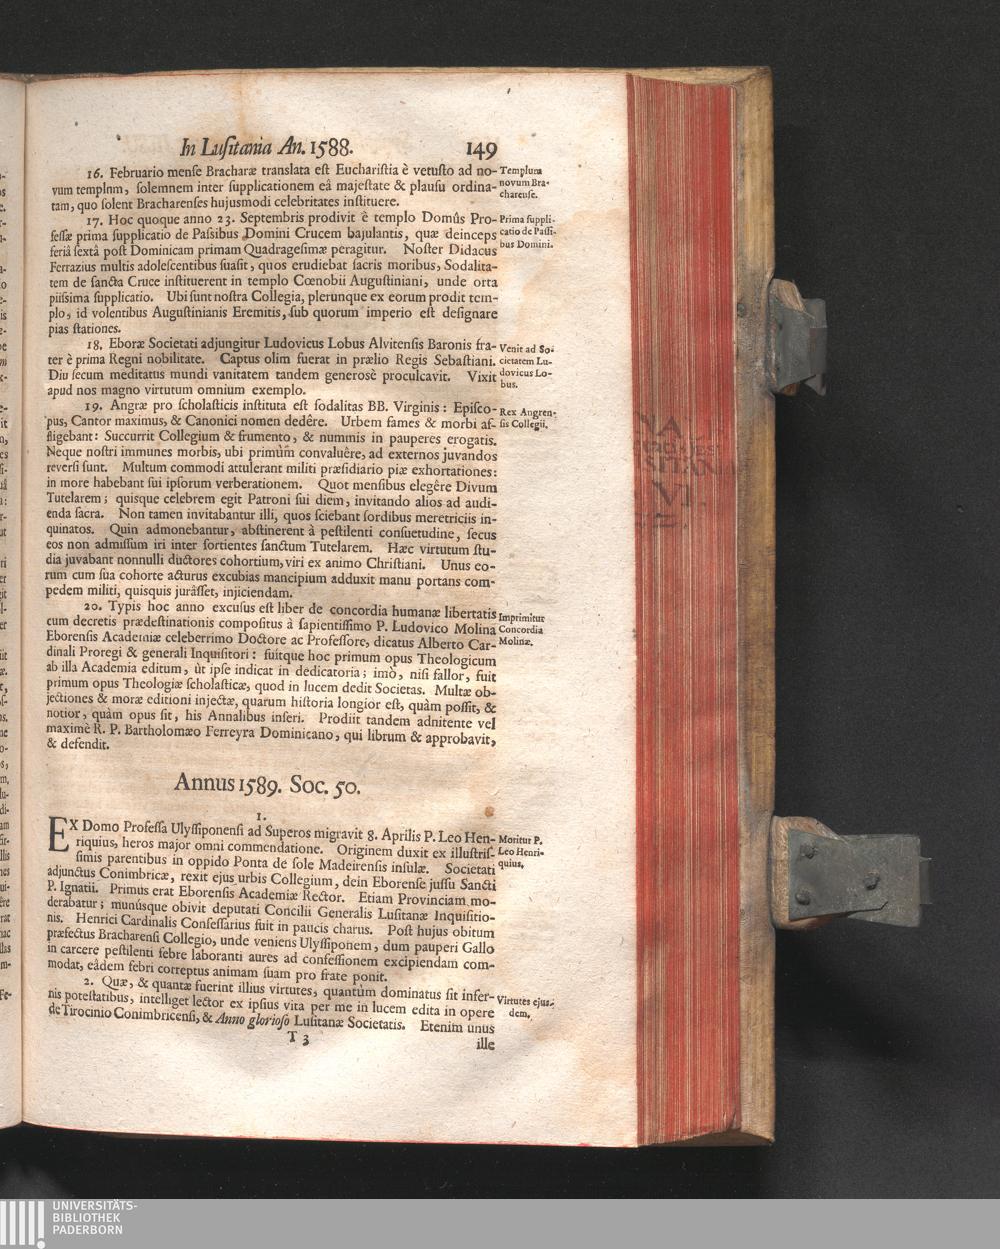 In Luſitania An. 1588. 149
16. Februario menſe Bracharæ translata eſt Euchariſtia è vetuſto ad no-
vum templnm, ſolemnem inter ſupplicationem eâ majeſtate & plauſu ordina-
tam, quo ſolent Bracharenſes hujusmodi celebritates inſtituere.
Templum
novum Bra-
charenſe.
17. Hoc quoque anno 23. Septembris prodivit è templo Domûs Pro-
feſſæ prima ſupplicatio de Paſsibus Domini Crucem bajulantis, quæ deinceps
feriâ ſextâ poſt Dominicam primam Quadrageſimæ peragitur. Noſter Didacus
Ferrazius multis adoleſcentibus ſuaſit, quos erudiebat ſacris moribus, Sodalita-
tem de ſancta Cruce inſtituerent in templo Cœnobii Auguſtiniani, unde orta
piiſsima ſupplicatio. Ubi ſunt noſtra Collegia, plerunque ex eorum prodit tem-
plo, id volentibus Auguſtinianis Eremitis, ſub quorum imperio eſt deſignare
pias ſtationes.
Prima ſuppli-
catio de Paſſi-
bus Domini.
18. Eboræ Societati adjungitur Ludovicus Lobus Alvitenſis Baronis fra-
ter è prima Regni nobilitate. Captus olim fuerat in prælio Regis Sebaſtiani.
Diu ſecum meditatus mundi vanitatem tandem generosè proculcavit. Vixit
apud nos magno virtutum omnium exemplo.
Venit ad So-
cietatem Lu-
dovicus Lo-
bus.
19. Angræ pro ſcholaſticis inſtituta eſt ſodalitas BB. Virginis: Epiſco-
pus, Cantor maximus, & Canonici nomen dedêre. Urbem fames & morbi af-
fligebant: Succurrit Collegium & frumento, & nummis in pauperes erogatis.
Neque noſtri immunes morbis, ubi primùm convaluêre, ad externos juvandos
reverſi ſunt. Multum commodi attulerant militi præſidiario piæ exhortationes:
in more habebant ſui ipſorum verberationem. Quot menſibus elegêre Divum
Tutelarem; quisque celebrem egit Patroni ſui diem, invitando alios ad audi-
enda ſacra. Non tamen invitabantur illi, quos ſciebant ſordibus meretriciis in-
quinatos. Quin admonebantur, abſtinerent à peſtilenti conſuetudine, ſecus
eos non admiſſum iri inter ſortientes ſanctum Tutelarem. Hæc virtutum ſtu-
dia juvabant nonnulli ductores cohortium, viri ex animo Chriſtiani. Unus eo-
rum cum ſua cohorte acturus excubias mancipium adduxit manu portans com-
pedem militi, quisquis jurâſſet, injiciendam.
Rex Angren-
ſis Collegii.
20. Typis hoc anno excuſus eſt liber de concordia humanæ libertatis
cum decretis prædeſtinationis compoſitus à ſapientiſſimo P. Ludovico Molina
Eborenſis Academiæ celeberrimo Doctore ac Profeſſore, dicatus Alberto Car-
dinali Proregi & generali Inquiſitori: fuitque hoc primum opus Theologicum
ab illa Academia editum, ùt ipſe indicat in dedicatoria; imò, niſi fallor, fuit
primum opus Theologiæ ſcholaſticæ, quod in lucem dedit Societas. Multæ ob-
jectiones & moræ editioni injectæ, quarum hiſtoria longior eſt, quàm poſſit, &
notior, quàm opus ſit, his Annalibus inſeri. Prodiit tandem adnitente vel
maximè R. P. Bartholomæo Ferreyra Dominicano, qui librum & approbavit,
& defendit.
Imprimitur
Concordia
Molinæ.
Annus 1589. Soc. 50.
1.
EX Domo Profeſſa Ulyſſiponenſi ad Superos migravit 8. Aprilis P. Leo Hen-
riquius, heros major omni commendatione. Originem duxit ex illuſtriſ-
ſimis parentibus in oppido Ponta de ſole Madeirenſis inſulæ. Societati
adjunctus Conimbricæ, rexit ejus urbis Collegium, dein Eborenſe juſſu Sancti
P. Ignatii. Primus erat Eborenſis Academiæ Rector. Etiam Provinciam mo-
derabatur; munúsque obivit deputati Concilii Generalis Luſitanæ Inquiſitio-
nis. Henrici Cardinalis Confeſſarius fuit in paucis charus. Poſt hujus obitum
præfectus Bracharenſi Collegio, unde veniens Ulyſſiponem, dum pauperi Gallo
in carcere peſtilenti febre laboranti aures ad confeſſionem excipiendam com-
modat, eâdem febri correptus animam ſuam pro fratre ponit.
Moritur P.
Leo Henri-
quius.
2. Quæ, & quantæ fuerint illius virtutes, quantùm dominatus ſit infer-
nis poteſtatibus, intelliget lector ex ipſius vita per me in lucem edita in opere
de Tirocinio Conimbricenſi, & Anno glorioſo Luſitanæ Societatis. Etenim unus
Virtutes ejus-
dem.
T 3 ille
UNIVERSITÄTS-
BIBLIOTHEK
PADERBORN